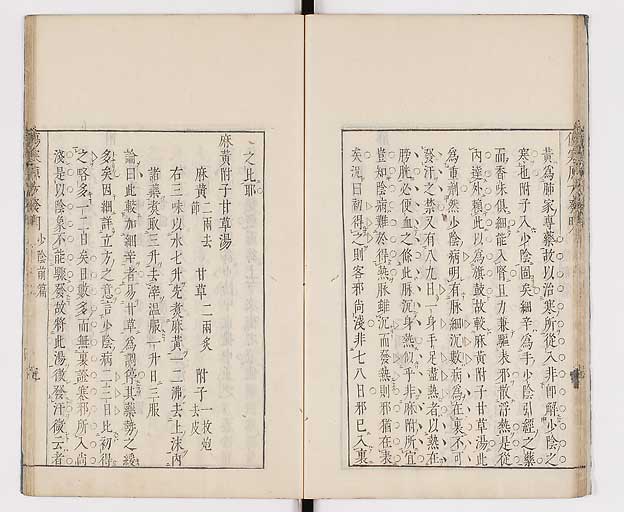 黃爲肺家專藥故以治寒所從入非卽解少陰之
寒也附子入少陰固矣細辛爲手少陰引經之藥
而香味俱細能入腎且力兼驅表邪散浮熱是從
內達外穩此以爲旗鼓故較麻黃附子甘草湯此
爲重劑然少陰病明有脉細沉數病爲在裏不可
發汗之禁又有八九日一身手足盡熱者以熱在
膀胱必便血之條此脉沉身熱似乎非麻附所宜
豈知陰病難於得熱脉雖沉而發熱則邪猶在表
矣況曰初得之則客邪尚淺非七八日邪已入裏
之比耶
麻黃附子甘草湯
麻黃二兩去節 甘草二兩炙 附子一枚炮去皮
右三味以水七升先煮麻黃一二沸去上沫內
諸藥煮取三升去滓溫服一升日三服
論曰此較加細辛者易甘草爲調停其藥勢之緩
多矣因細詳立方之意言少陰病二三日比初得
之略多一二日矣日數多而無裏證寒邪所入尚
淺是以陰象不能驟發故將此湯微發汗微云者
少陰前篇